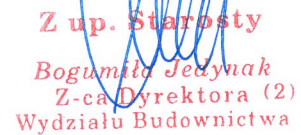 Z up. Starosty
Bogumiła Jedynak
Z-ca Dyrektora (2)
Wydziału Budownictwa